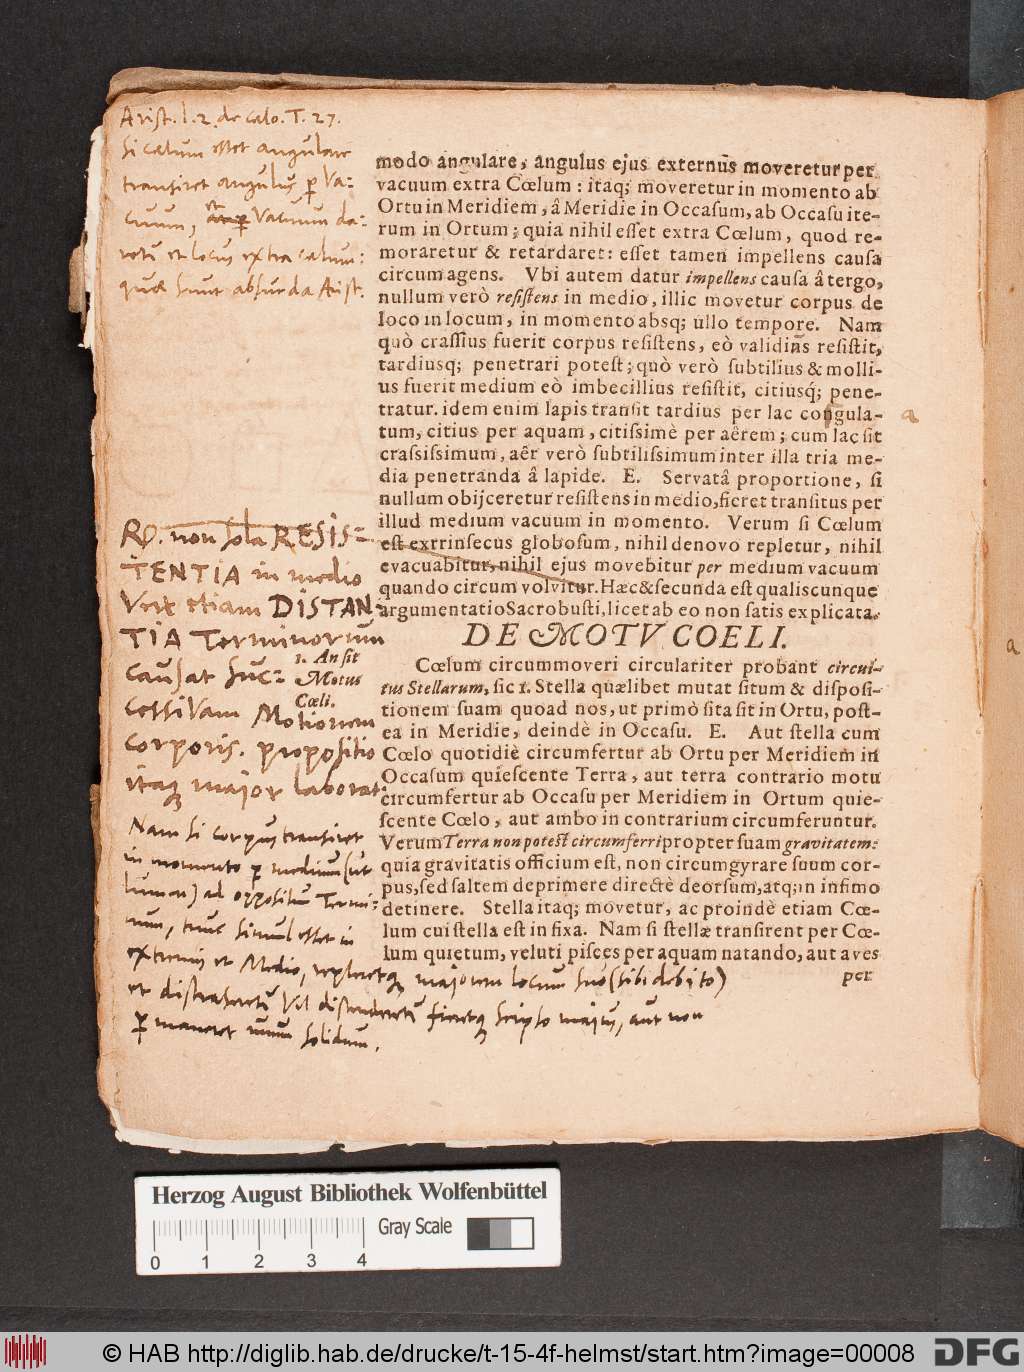 Arist. l. 2. de cælo. T. 27.
Si cælum esset angulare
transiret angulus p Va-
cuum, et Vacuum da-
retur et locus extra cælum:
quæ sunt absurda Arist.
modo angulare, angulus ejus externũs moveretur per
vacuum extra Cœlum : itaq; moveretur in momento ab
Ortu in Meridiem, â Meridie in Occasum, ab Occasu ite-
rum in Ortum ; quia nihil esset extra Cœlum, quod re-
moraretur & retardaret: esset tamen impellens causa
circumagens. Vbi autem datur impellens causa â tergo,
nullum verò resistens in medio, illic movetur corpus de
loco in locum, in momento absq; ullo tempore. Nam
quò crassius fuerit corpus resistens, eò validiũs resistit,
tardiusq; penetrari potest ; quò verò subtilius & molli-
us fuerit medium eò imbecillius resistit, citiusq́; pene-
tratur. idem enim lapis transit tardius per lac congula-
tum, citius per aquam, citissimè per aêrem ; cum lac sit
crassissimum, aêr verò subtilissimum inter illa tria me-
dia penetranda â lapide. E. Servatâ proportione, si
nullum obijceretur resistens in medio, fieret transitus per
illud medium vacuum in momento. Verum si Cœlum
est extrinsecus globosum, nihil denovo repletur, nihil
evacuabitur, nihil ejus movebitur per medium vacuum
quando circum volvitur. Hæc & secunda est qualiscunque
argumentatio Sacrobusti, licet ab eo non satis explicata.
a
a
R. non sola RESIS-
TENTIA in medio
Verùm etiam DISTAN-
TIA Terminorum
causat suc-
cessivam Motionem
corporis. propositio
itaq; major laborat.
Nam si corpus transiret
in momento p medium (ut
lumen) ad oppositum Termi-
num, tunc simul esset in
extremis et Medio, repleretq; majorem locum suo (sibi debito)
et distraheretur Vel distenderetur fieretq; seipso majus, aut non
p maneret unum solidum.
DE MOTV COELI.
1. An sit
Motus
Cœli.
Cœlum circummoveri circulariter probant circui-
tus Stellarum, sic 1. Stella quælibet mutat situm & disposi-
tionem suam quoad nos, ut primò sita sit in Ortu, post-
ea in Meridie, deindè in Occasu. E. Aut stella cum
Cœlo quotidiè circumfertur ab Ortu per Meridiem in
Occasum quiescente Terra, aut terra contrario motu
circumfertur ab Occasu per Meridiem in Ortum quie-
scente Cœlo, aut ambo in contrarium circumferuntur.
Verum Terra non potest circumferri propter suam gravitatem:
quia gravitatis officium est, non circumgyrare suum cor-
pus, sed saltem deprimere directè deorsum, atq; in infimo
detinere. Stella itaq; movetur, ac proindè etiam Cœ-
lum cui stella est in fixa. Nam si stellæ transirent per Cœ-
lum quietum, veluti pisces per aquam natando, aut aves
per
Herzog August Bibliothek Wolfenbüttel
Gray Scale
0 1 2 3 4
© HAB http://diglib.hab.de/drucke/t-15-4f-helmst/start.htm?image=00008
DFG